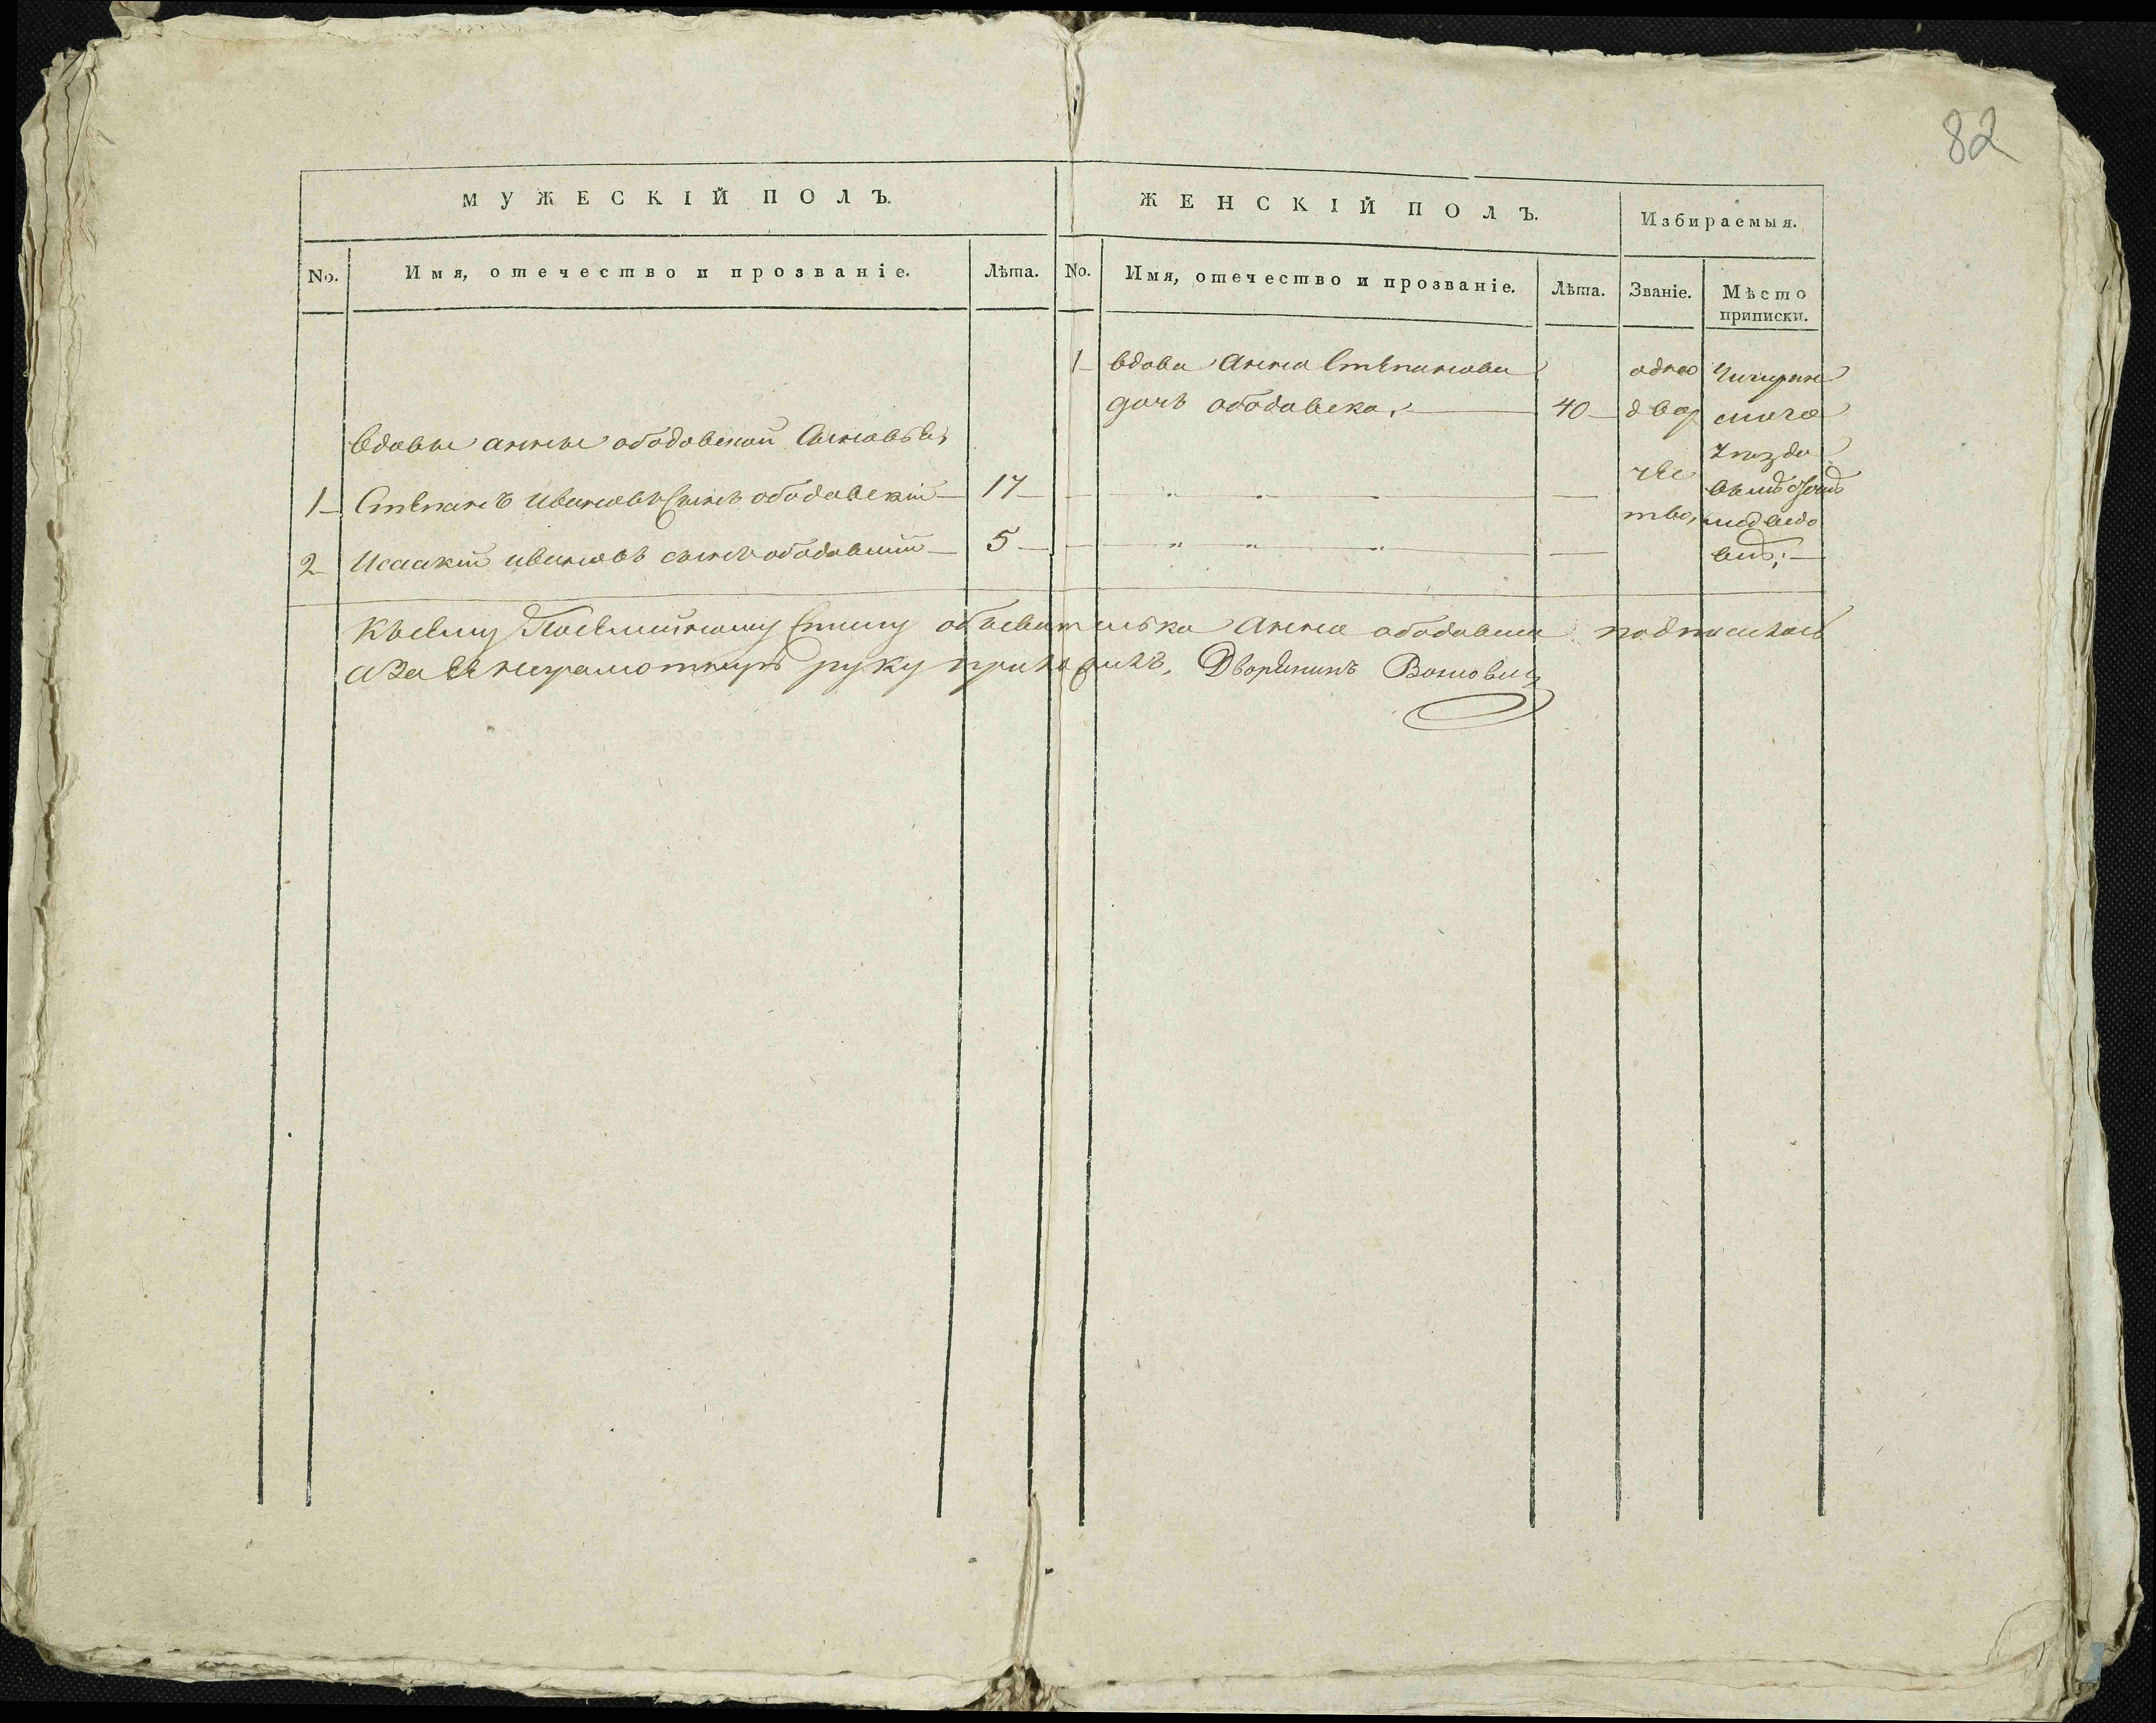 82
МУЖЕСКІЙ ПОЛЪ.
No. Имя, отечество и прозваніе. Лѣта.
вдовы анны ободовской Сыновья,
1 Степанъ ивановъ Сынъ ободовскій 17
2 Исаакій ивановъ сынъ ободовскій 5
ЖЕНСКІЙ ПОЛЪ. Избираемыя.
No. Имя, отечество и прозваніе. Лѣта. Званіе. Мѣсто приписки.
1 вдова анна Степанова одно Чигирин
дочь ободовска, 40 двор
уезда
чес
тво, медведо
Къ сему Посемейному Списку объевителька анна ободовска подписалась
а За Ея неграмотную руку приложилъ, Дворянинъ